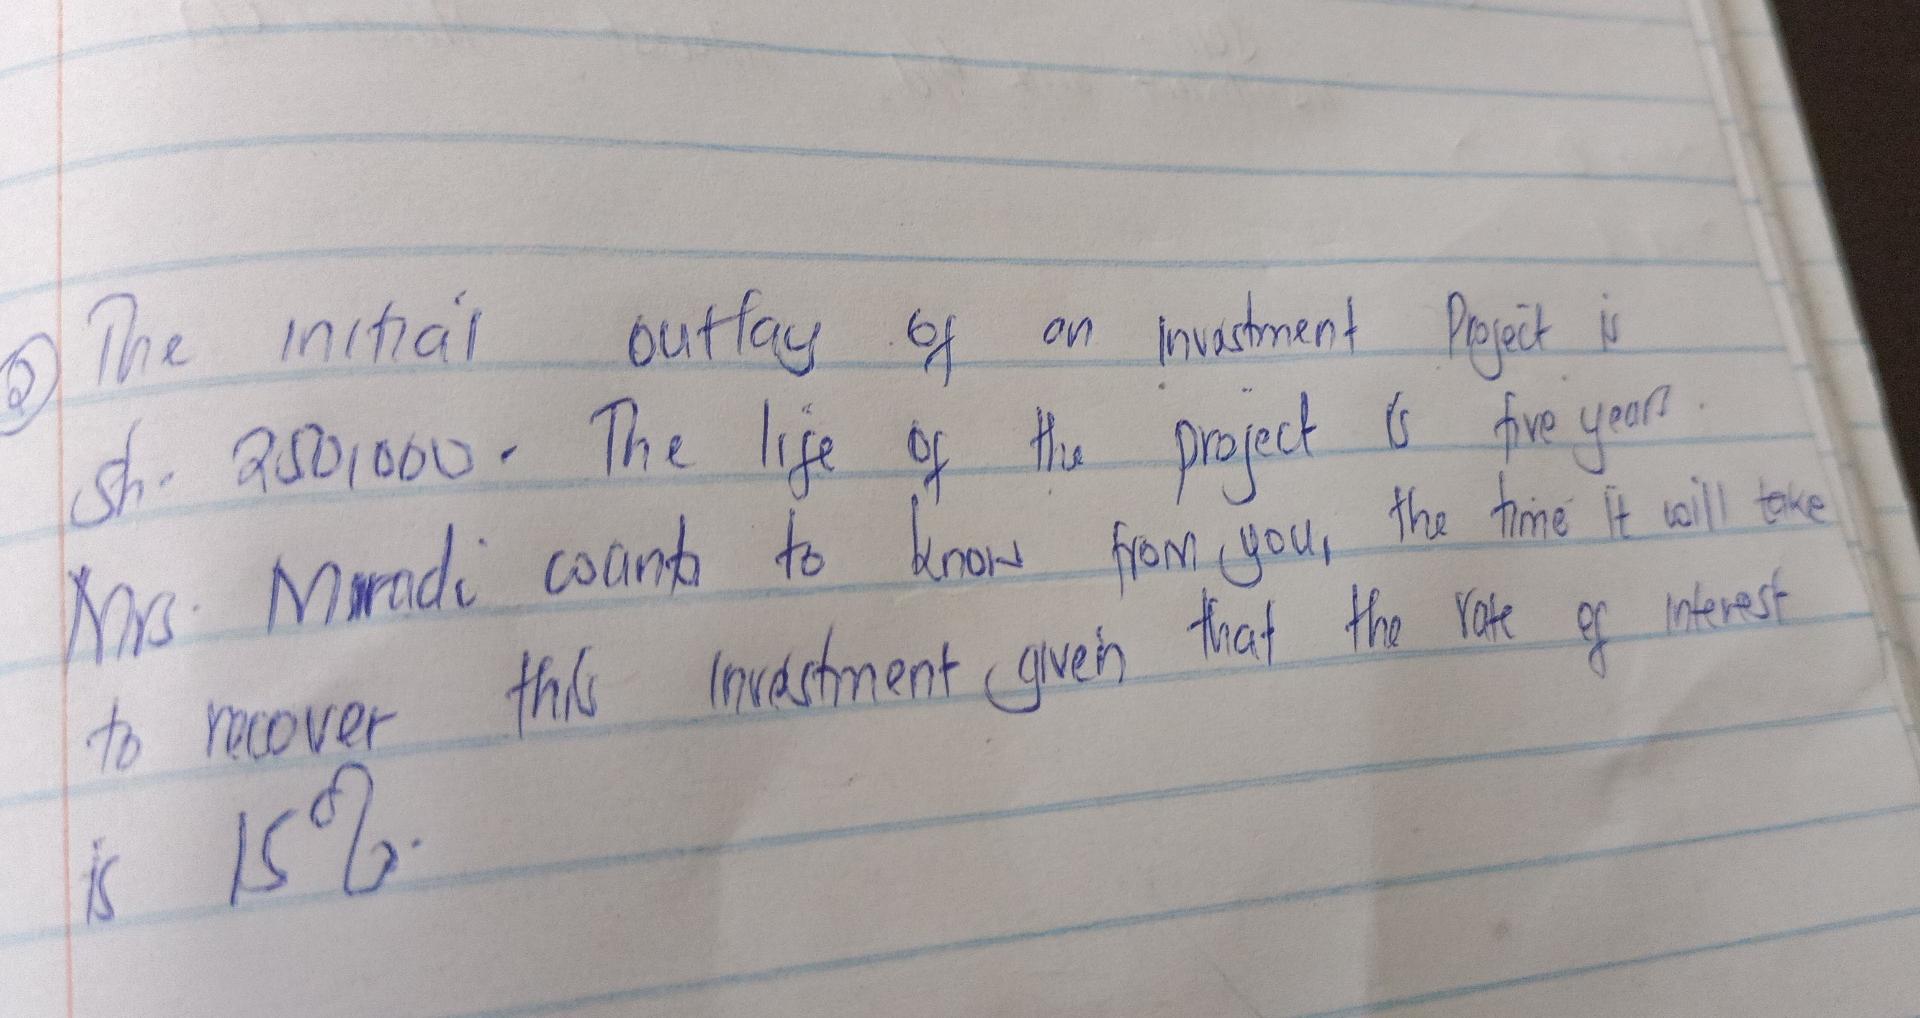 ② The initial outlay of an investment Project is
sh. 250,000. The life of the project is five years.
Mrs. Muradi wants to know from you, the time it will take
to recover this investment given that the rate of interest
is 15%.